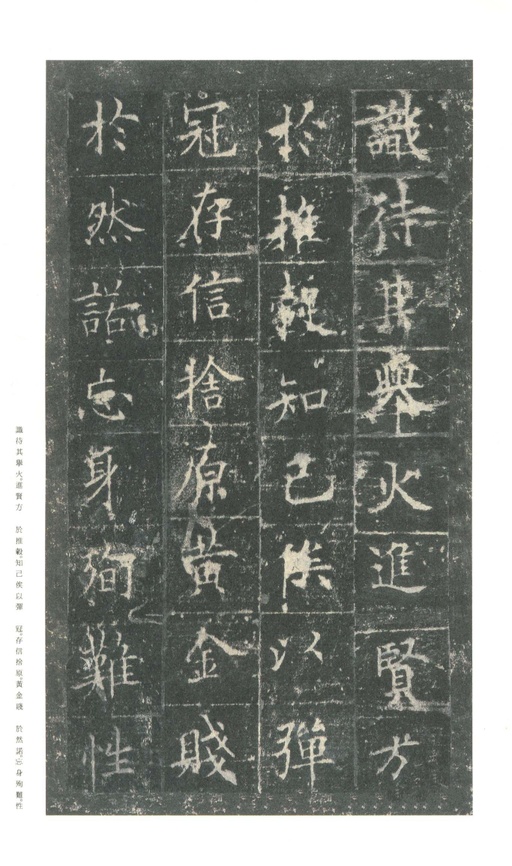 識待其舉火進賢方
於推轂知己俟以彈
冠存信捨原黃金賤
於然諾忘身殉難性
識待其舉火進賢方 於推轂知己俟以彈 冠存信捨原黃金賤 於然諾忘身殉難性